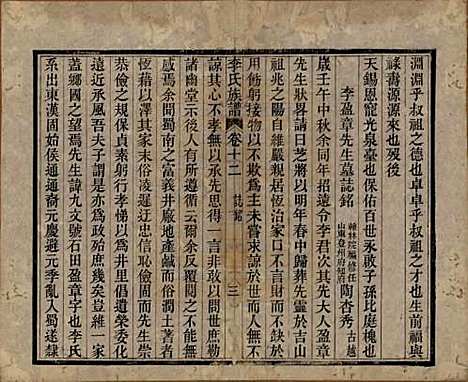 淵淵乎叔祖之德也卓卓乎叔祖之才也生前福與
祿壽源源來也歿後
天錫恩寵光泉臺也保佑百世永敢子孫比庭槐也
李盈章先生墓誌銘
翰林院編修任
山東登州府知府
陶杏秀
古越
歲壬午中秋余同年招遠令李君次其先大人盈章
先生狀畧請曰芝將以明年春中歸葬先靈於吉山
祖兆之陽自維嚴親居恆治家口不言財而不缺於
用飭躬接物以不欺為主未嘗求諒於世而世無不
諒其心不孝無以承先思得一言非敢以問世庶勒
李氏族譜
卷十二
誌銘
三
諸幽堂示後人有所遵循余反覆閱之不能無
感焉余聞蜀南之富義井廠地產鹹而俗潤土著者
恆薇其利後生習染末俗凌遲迂古恥言而先生崇
古之規保貞素躬行孝悌以不一井里舊遺榮委化
遠近承風吾夫子謂是亦為政殆庶幾矣豈維一家
蓋鄉國之望焉先生諱九文號石田盈章字也李氏
系出東漢固始侯通通裔元慶避元季亂入蜀遂隸